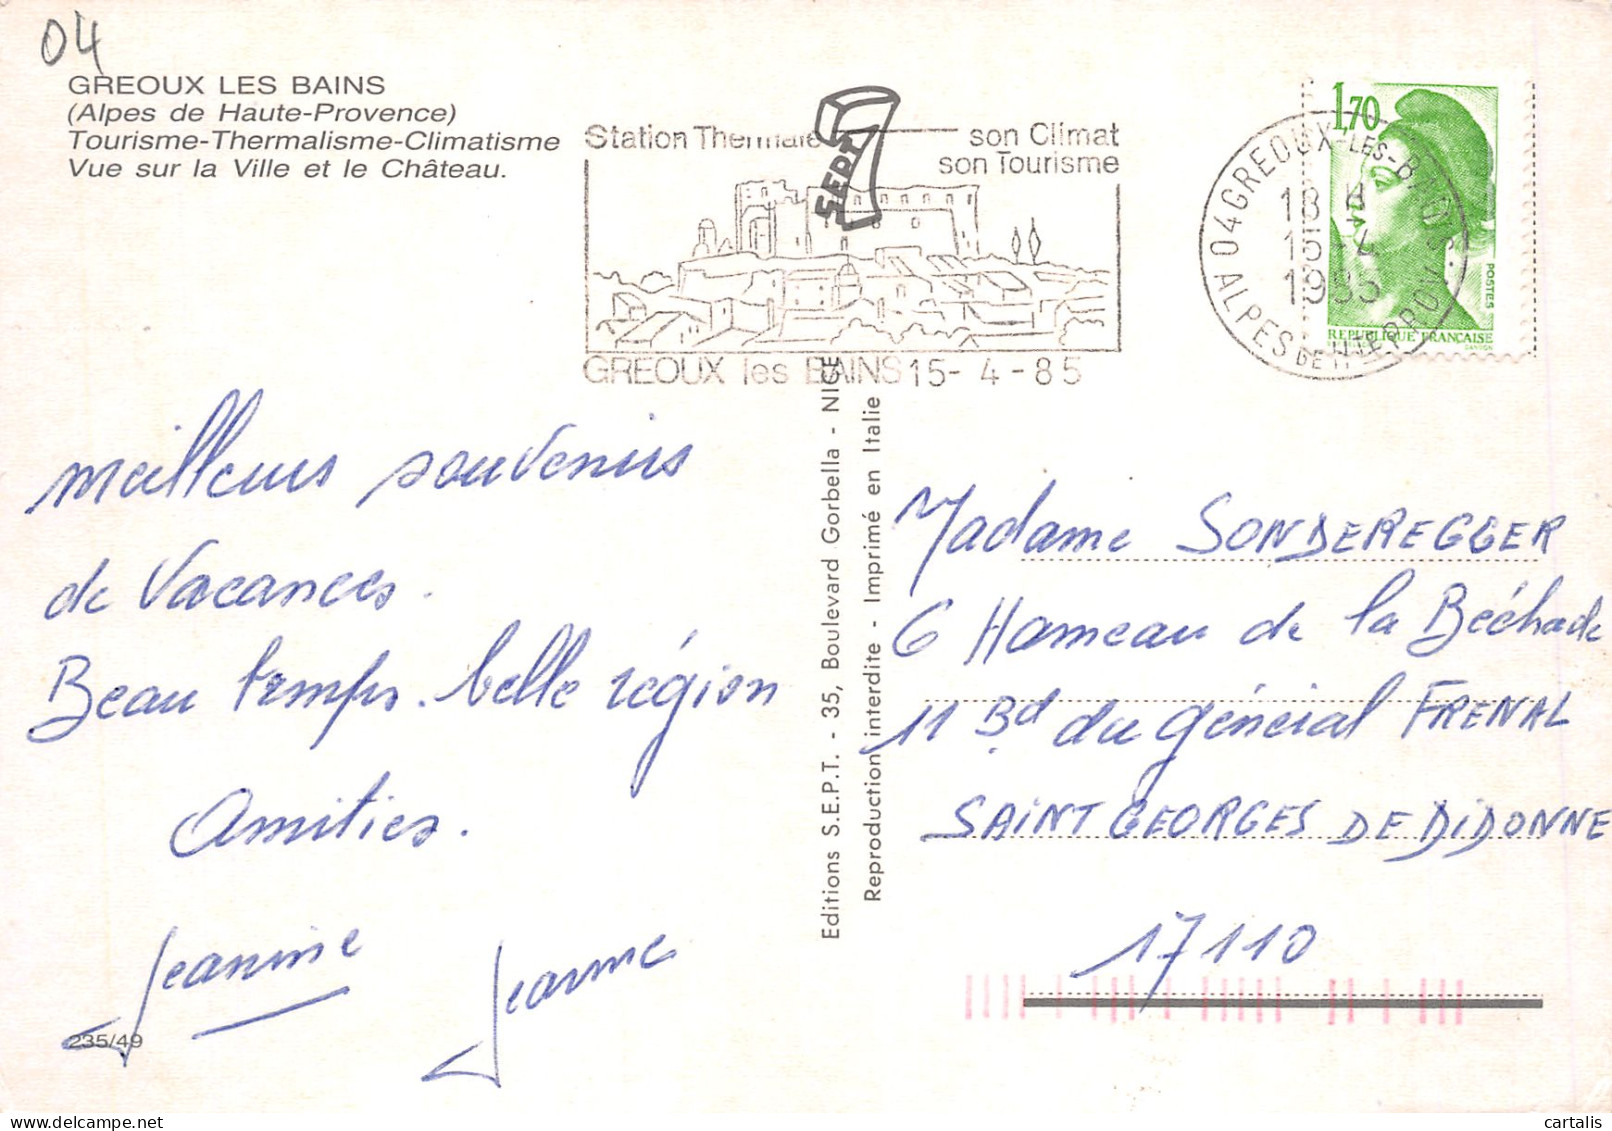 04
GREOUX LES BAINS
(Alpes de Haute-Provence)
Tourisme-Thermalisme-Climatisme
Vue sur la Ville et le Château.
Station Thermale
son Climat
son Tourisme
SEPT
GREOUX les BAINS 15-4-85
04 GREOUX-LES-BAINS
18 H
15-4
1985
ALPES DE HTE PROV.
1,70
POSTES
REPUBLIQUE FRANÇAISE
meilleurs souvenirs
de Vacances.
Beau temps. belle région
Amitiés.
Jeannine
Jeanne
235/49
Editions S.E.P.T. - 35, Boulevard Gorbella - NICE
Reproduction interdite - Imprimé en Italie
Madame SONDEREGGER
6 Hameau de la Béchade
11 Bd du général FRENAL
SAINT GEORGES DE DIDONNE
17110
cartalis